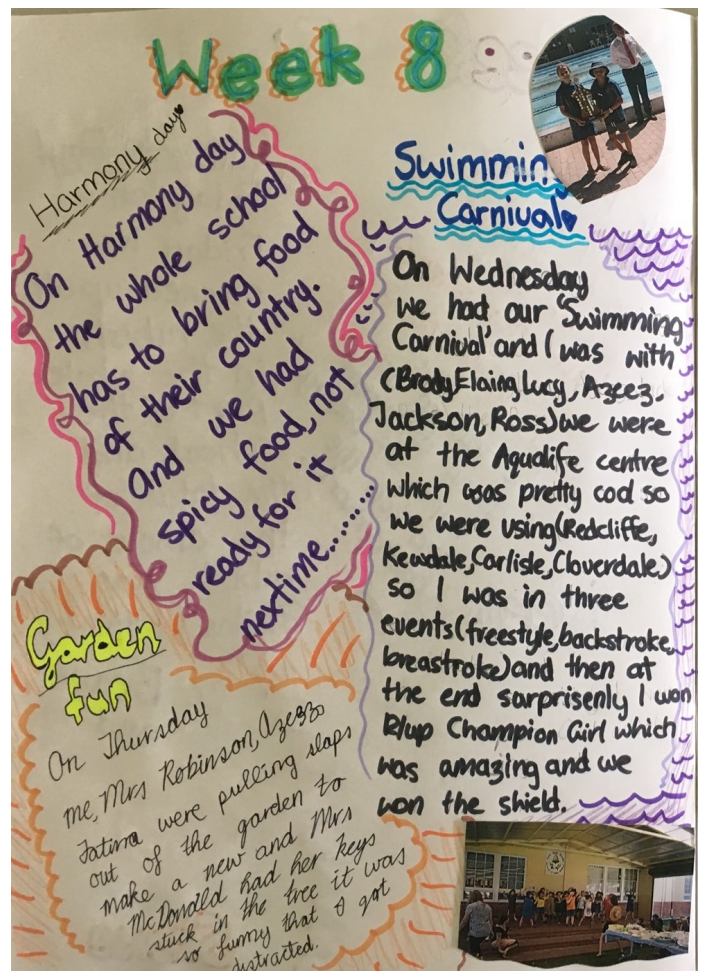 Week 8
Harmony day
On Harmony day
the whole school
has to bring food
of their country.
And we had
spicy food, not
ready for it
nextime.........
Swimming
Carnival
On Wednesday
we had our 'Swimming
Carnival' and I was with
(Brody, Elaing, Lucy, Azeez,
Jackson, Ross) we were
at the Aqualife centre
which was pretty cool so
we were using (Redcliffe,
Kewdale, Carlisle, Cloverdale)
so I was in three
events (freestyle, backstroke,
breastroke) and then at
the end sarprisenly I won
R/up Champion Girl which
was amazing and we
won the shield.
Garden
fun
On Thursday
me, Mrs Robinson, Azeez
Fatima were pulling slaps
out of the garden to
make a new and Mrs
McDonald had her keys
stuck in the tree it was
so funny that I got
distracted.